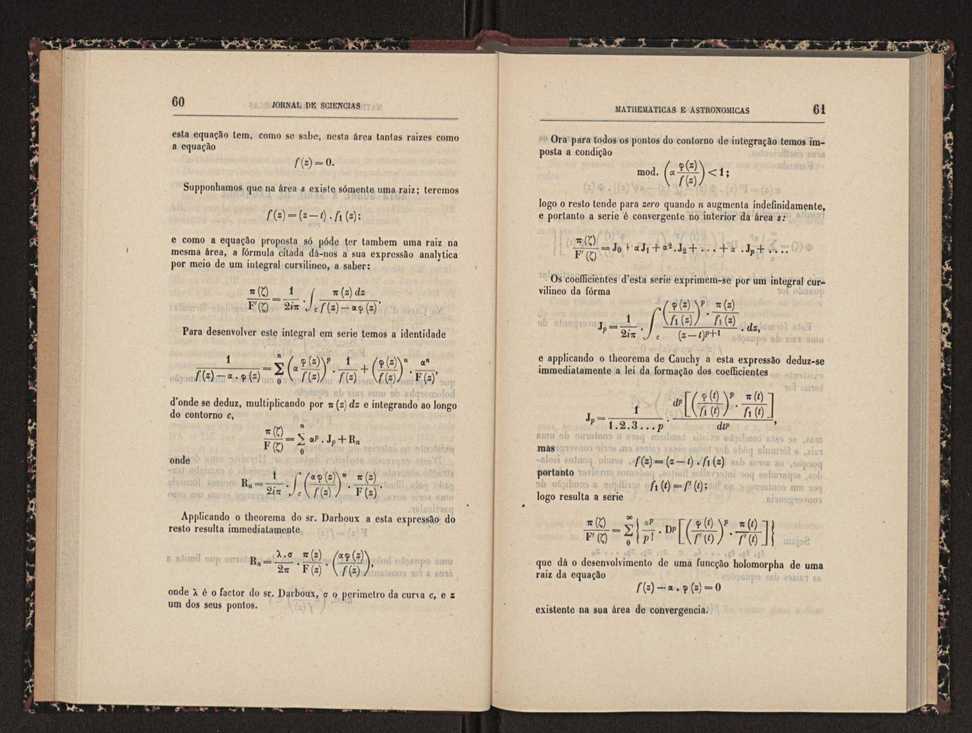 60 JORNAL DE SCIENCIAS
esta equação tem, como se sabe, nesta área tantas raizes como
a equação
f(z) = 0.
Supponhamos que na área s existe sómente uma raiz; teremos
f(z) = (z — t) . f₁(z);
e como a equação proposta só póde ter tambem uma raiz na
mesma área, a fórmula citada dá-nos a sua expressão analytica
por meio de um integral curvilineo, a saber:
π(ζ)/F′(ζ) = 1/2iπ . ∫_c π(z) dz / (f(z) — αφ(z)).
Para desenvolver este integral em serie temos a identidade
1/(f(z) — α . φ(z)) = Σ_0^n (α φ(z)/f(z))^p . 1/f(z) + (φ(z)/f(z))^n . α^n/F(z),
d'onde se deduz, multiplicando por π(z) dz e integrando ao longo
do contorno c,
π(ζ)/F(ζ) = Σ_0^n α^p . J_p + R_n
onde
R_n = 1/2iπ . ∫_c (αφ(z)/f(z))^n . π(z)/F(z).
Applicando o theorema do sr. Darboux a esta expressão do
resto resulta immediatamente
R_n = λ.σ/2π . π(z)/F(z) . (αφ(z)/f(z))^n,
onde λ é o factor do sr. Darboux, σ o perimetro da curva c, e z
um dos seus pontos.
MATHEMATICAS E ASTRONOMICAS 61
Ora para todos os pontos do contorno de integração temos im-
posta a condição
mod. (α φ(z)/f(z)) < 1;
logo o resto tende para zero quando n augmenta indefinidamente,
e portanto a serie é convergente no interior da área s:
π(ζ)/F′(ζ) = J₀ + αJ₁ + α².J₂ + . . . + α^p.J_p + . . . .
Os coefficientes d'esta serie exprimem-se por um integral cur-
vilineo da fórma
J_p = 1/2iπ . ∫_c (φ(z)/f₁(z))^p . π(z)/f₁(z) / (z — t)^{p+1} . dz,
e applicando o theorema de Cauchy a esta expressão deduz-se
immediatamente a lei da formação dos coefficientes
J_p = 1/(1.2.3...p) . d^p[(φ(t)/f₁(t))^p . π(t)/f₁(t)] / dt^p,
mas
f(z) = (z — t) . f₁(z)
portanto
f₁(t) = f′(t);
logo resulta a serie
π(ζ)/F′(ζ) = Σ_0^∞ {α^p/p! . D^p[(φ(t)/f′(t))^p . π(t)/f′(t)]}
que dá o desenvolvimento de uma funcção holomorpha de uma
raiz da equação
f(z) — α . φ(z) = 0
existente na sua área de convergencia.